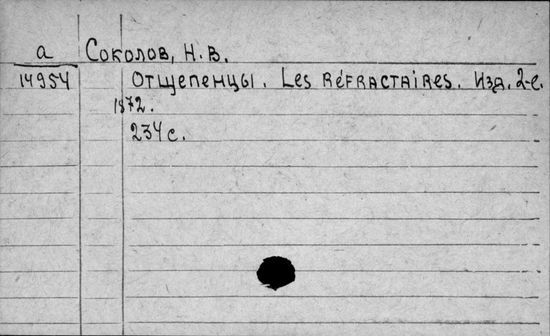 а
Соколов, Н. В.
14954
Отщепенцы. Les Réfractaires. Изд. 2-е.
1872.
234 с.